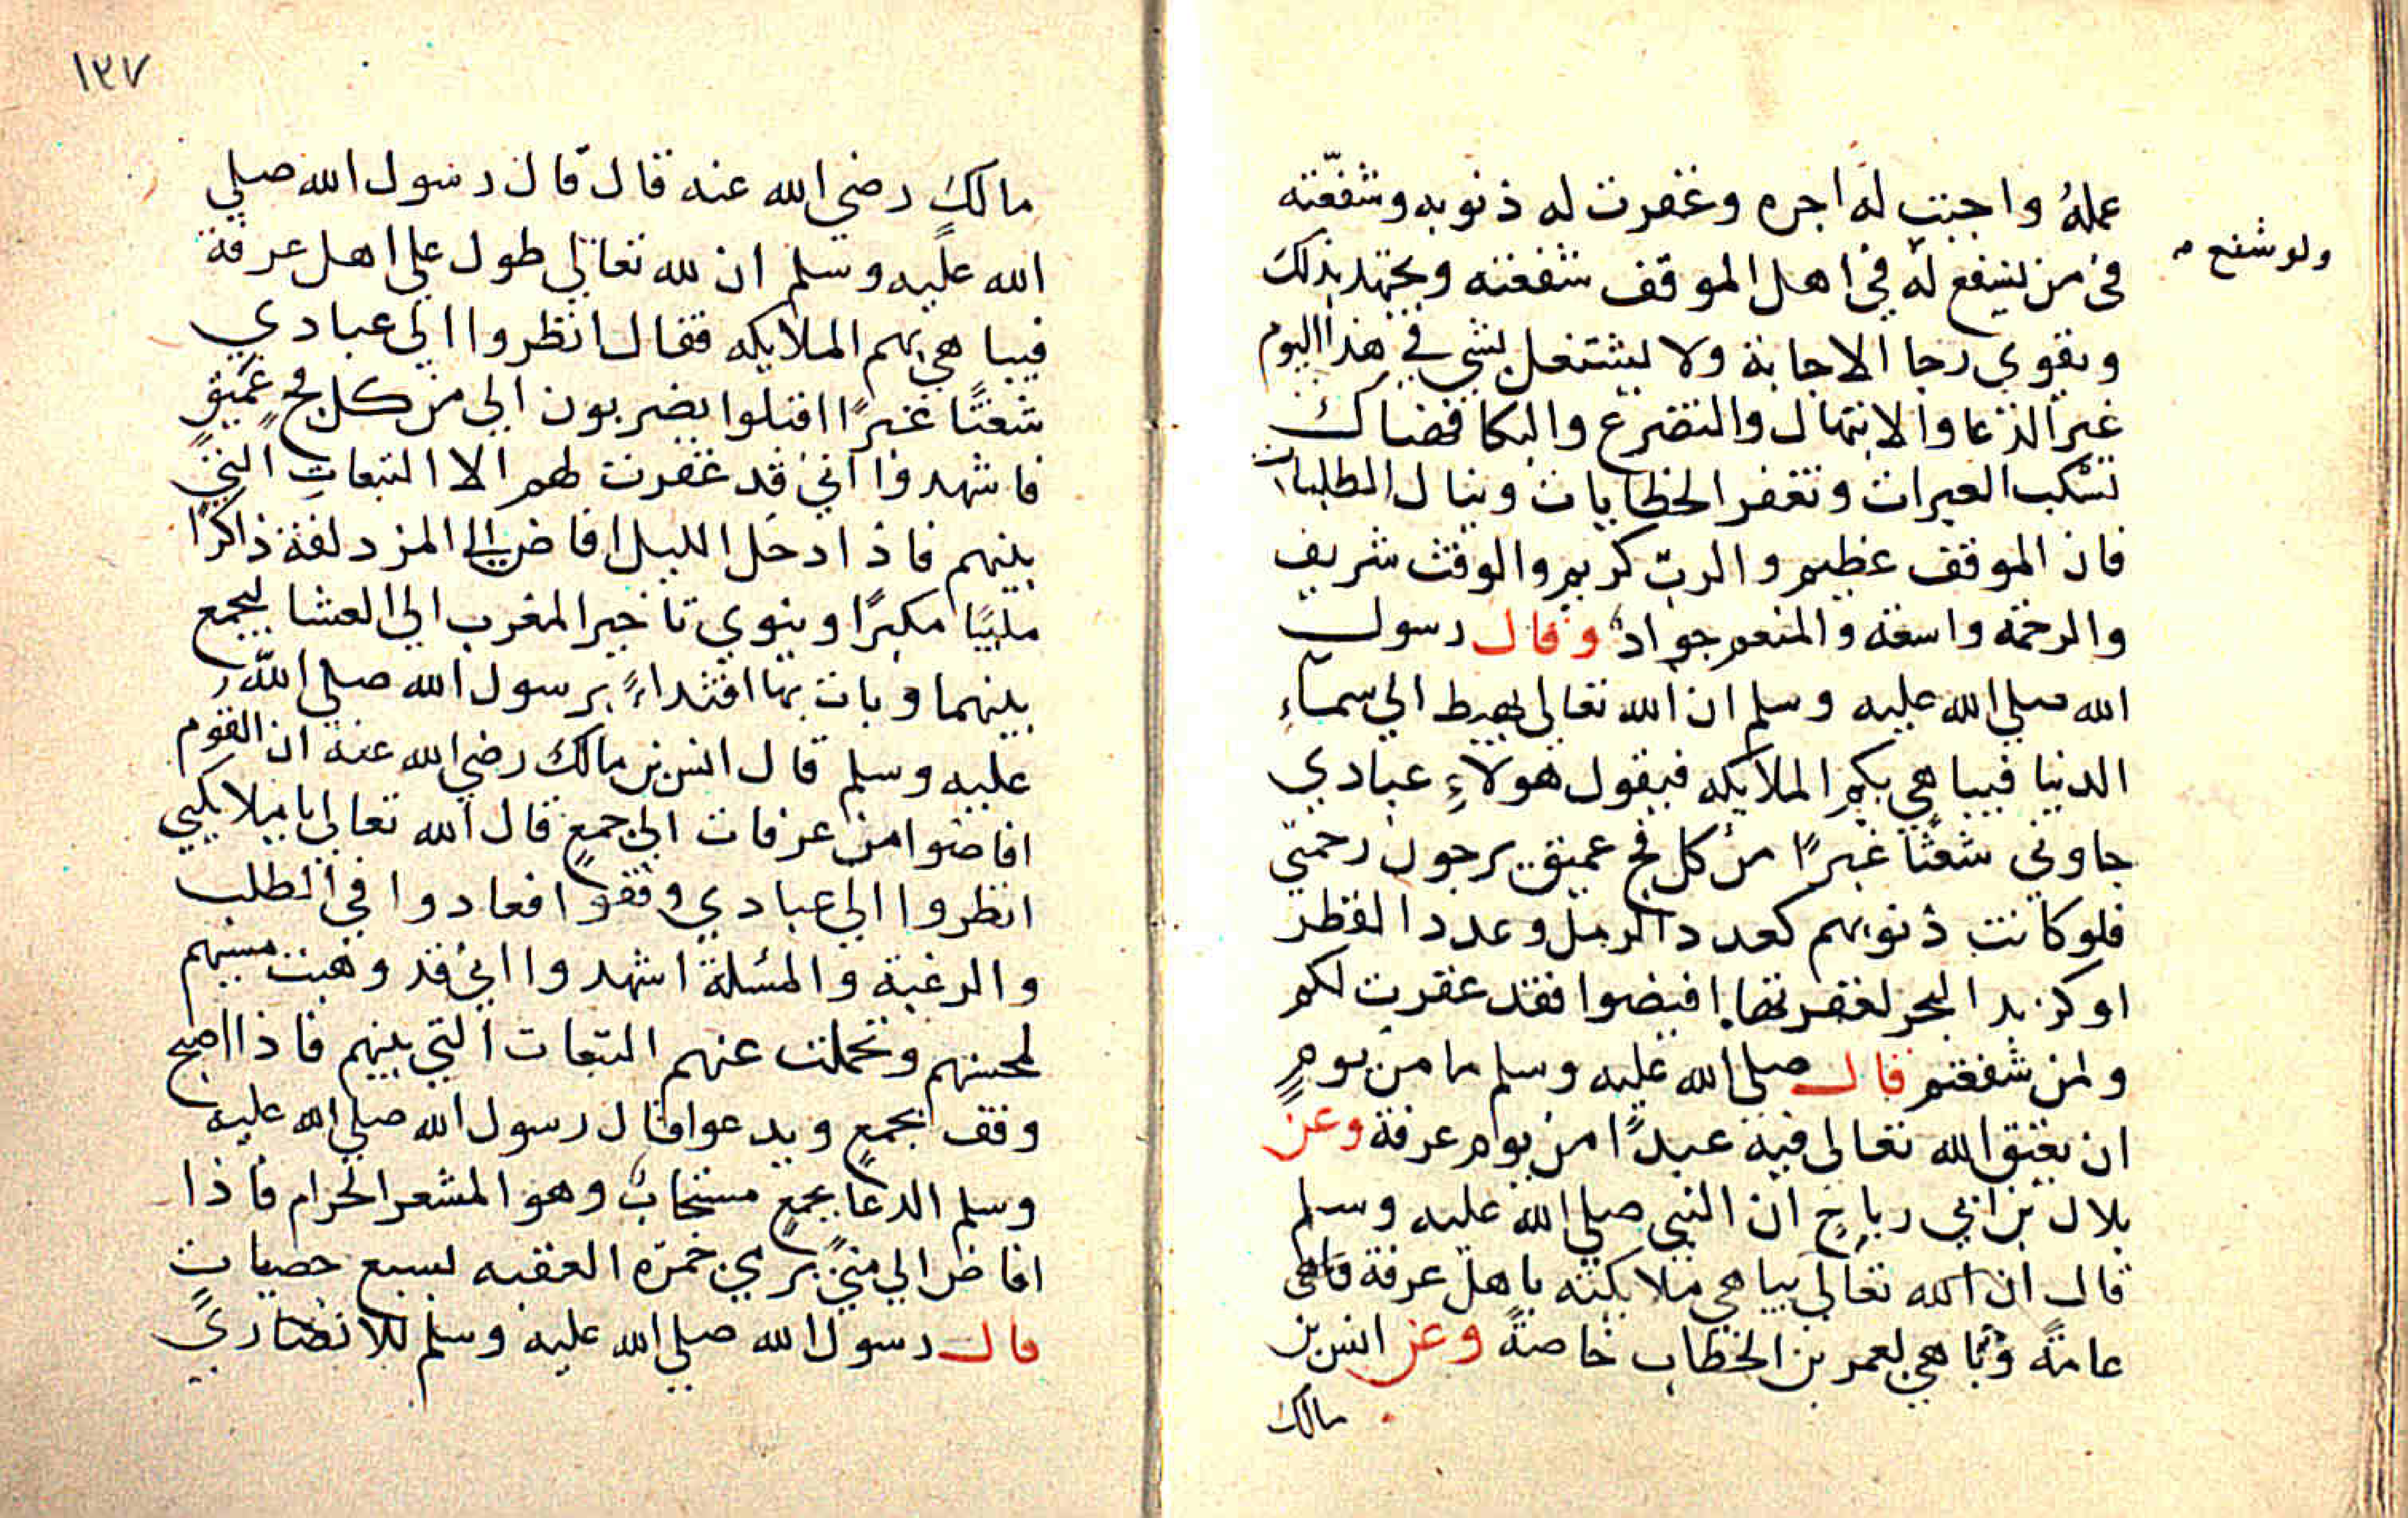 عمله واجبت له اجره وغفرت له ذنوبه وشفعته
ولو شفع
في من يشفع له في اهل الموقف شفعته ويجتهد بذلك
ويقوي رجا الاجابة ولا يشتغل بشي في هذا اليوم
غير الدعا والابتهال والتضرع والبكا فهناك
تسكب العبرات وتغفر الخطايات وينال الطلبات
فان الموقف عظيم والرب كريم والوقت شريف
والرحمة واسعة والمنعم جواد وقال رسول
الله صلي الله عليه وسلم ان الله تعالي يهبط الي سماء
الدنيا فيباهي بكم الملايكه فيقول هولاء عبادي
جاوني شعثا غبرا من كل فج عميق يرجون رحمتي
فلو كانت ذنوبهم كعدد الرمل وعدد القطر
او كزبد البحر لغفرتها افيضوا فقد غفرت لكم
ولمن شفعتم قال صلي الله عليه وسلم ما من يوم
ان يعتق الله تعالي فيه عبدا من يوم عرفة وعن
بلال بن ابي رباح ان النبي صلي الله عليه وسلم
قال ان الله تعالي يباهي ملايكته باهل عرفة
عامة وباهي لعمر بن الخطاب خاصة وعن انس بن
مالك
١٣٧
مالك رضي الله عنه قال قال رسول الله صلي
الله عليه وسلم ان لله تعالي طول علي اهل عرفة
فيباهي بهم الملايكه فقال انظروا الي عبادي
شعثا غبرا اقبلوا يضربون الي من كل فج عميق
فاشهدوا اني قد غفرت لهم الا التبعات التي
بينهم فاذا دخل الليل افاض الي المزدلفة ذاكرا
ملبيا مكبرا وينوي تاخير المغرب الي العشا ليجمع
بينهما وبات بها اقتداء برسول الله صلي الله
عليه وسلم قال انس بن مالك رضي الله عنه ان القوم
افاضوا من عرفات الي جمع قال الله تعالي يا ملايكتي
انظروا الي عبادي وقفوا فعادوا في الطلب
والرغبة والمسئلة اشهدوا اني قد وهبت مسيهم
لمحسنهم وتحملت عنهم التبعات التي بينهم فاذا اصبح
وقف بجمع ويدعوا قال رسول الله صلي الله عليه
وسلم الدعا بجمع مستجاب وهو المشعر الحرام فاذا
افاض الي مني يرمي جمرة العقبه بسبع حصيات
قال رسول الله صلي الله عليه وسلم للانصاري